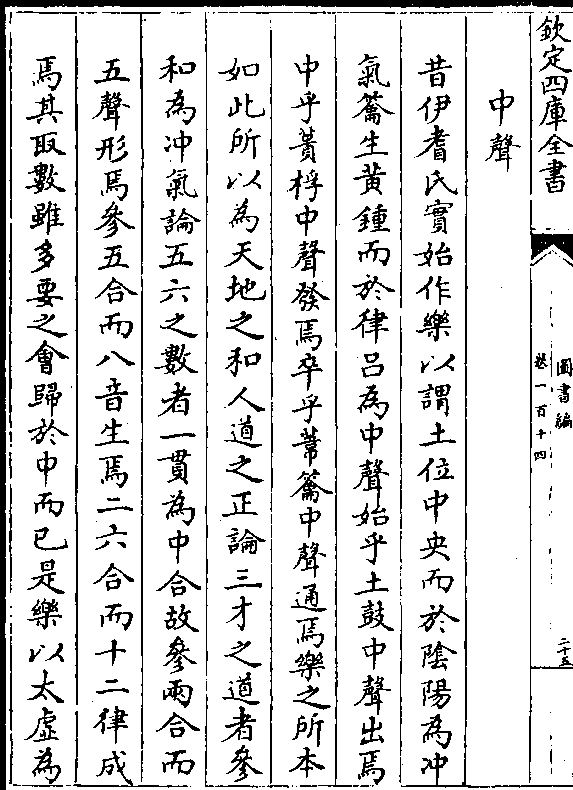 欽定四庫全書
圖書編
卷一百十四
二十五
中聲
昔伊耆氏實始作樂以謂土位中央而於陰陽為冲
氣籥生黃鍾而於律呂為中聲始乎土鼓中聲出焉
中乎蕢桴中聲發焉卒乎葦籥中聲通焉樂之所本
如此所以為天地之和人道之正論三才之道者參
和為冲氣論五六之數者一貫為中合故參兩合而
五聲形焉參五合而八音生焉二六合而十二律成
焉其取數雖多要之會歸於中而已是樂以太虛為